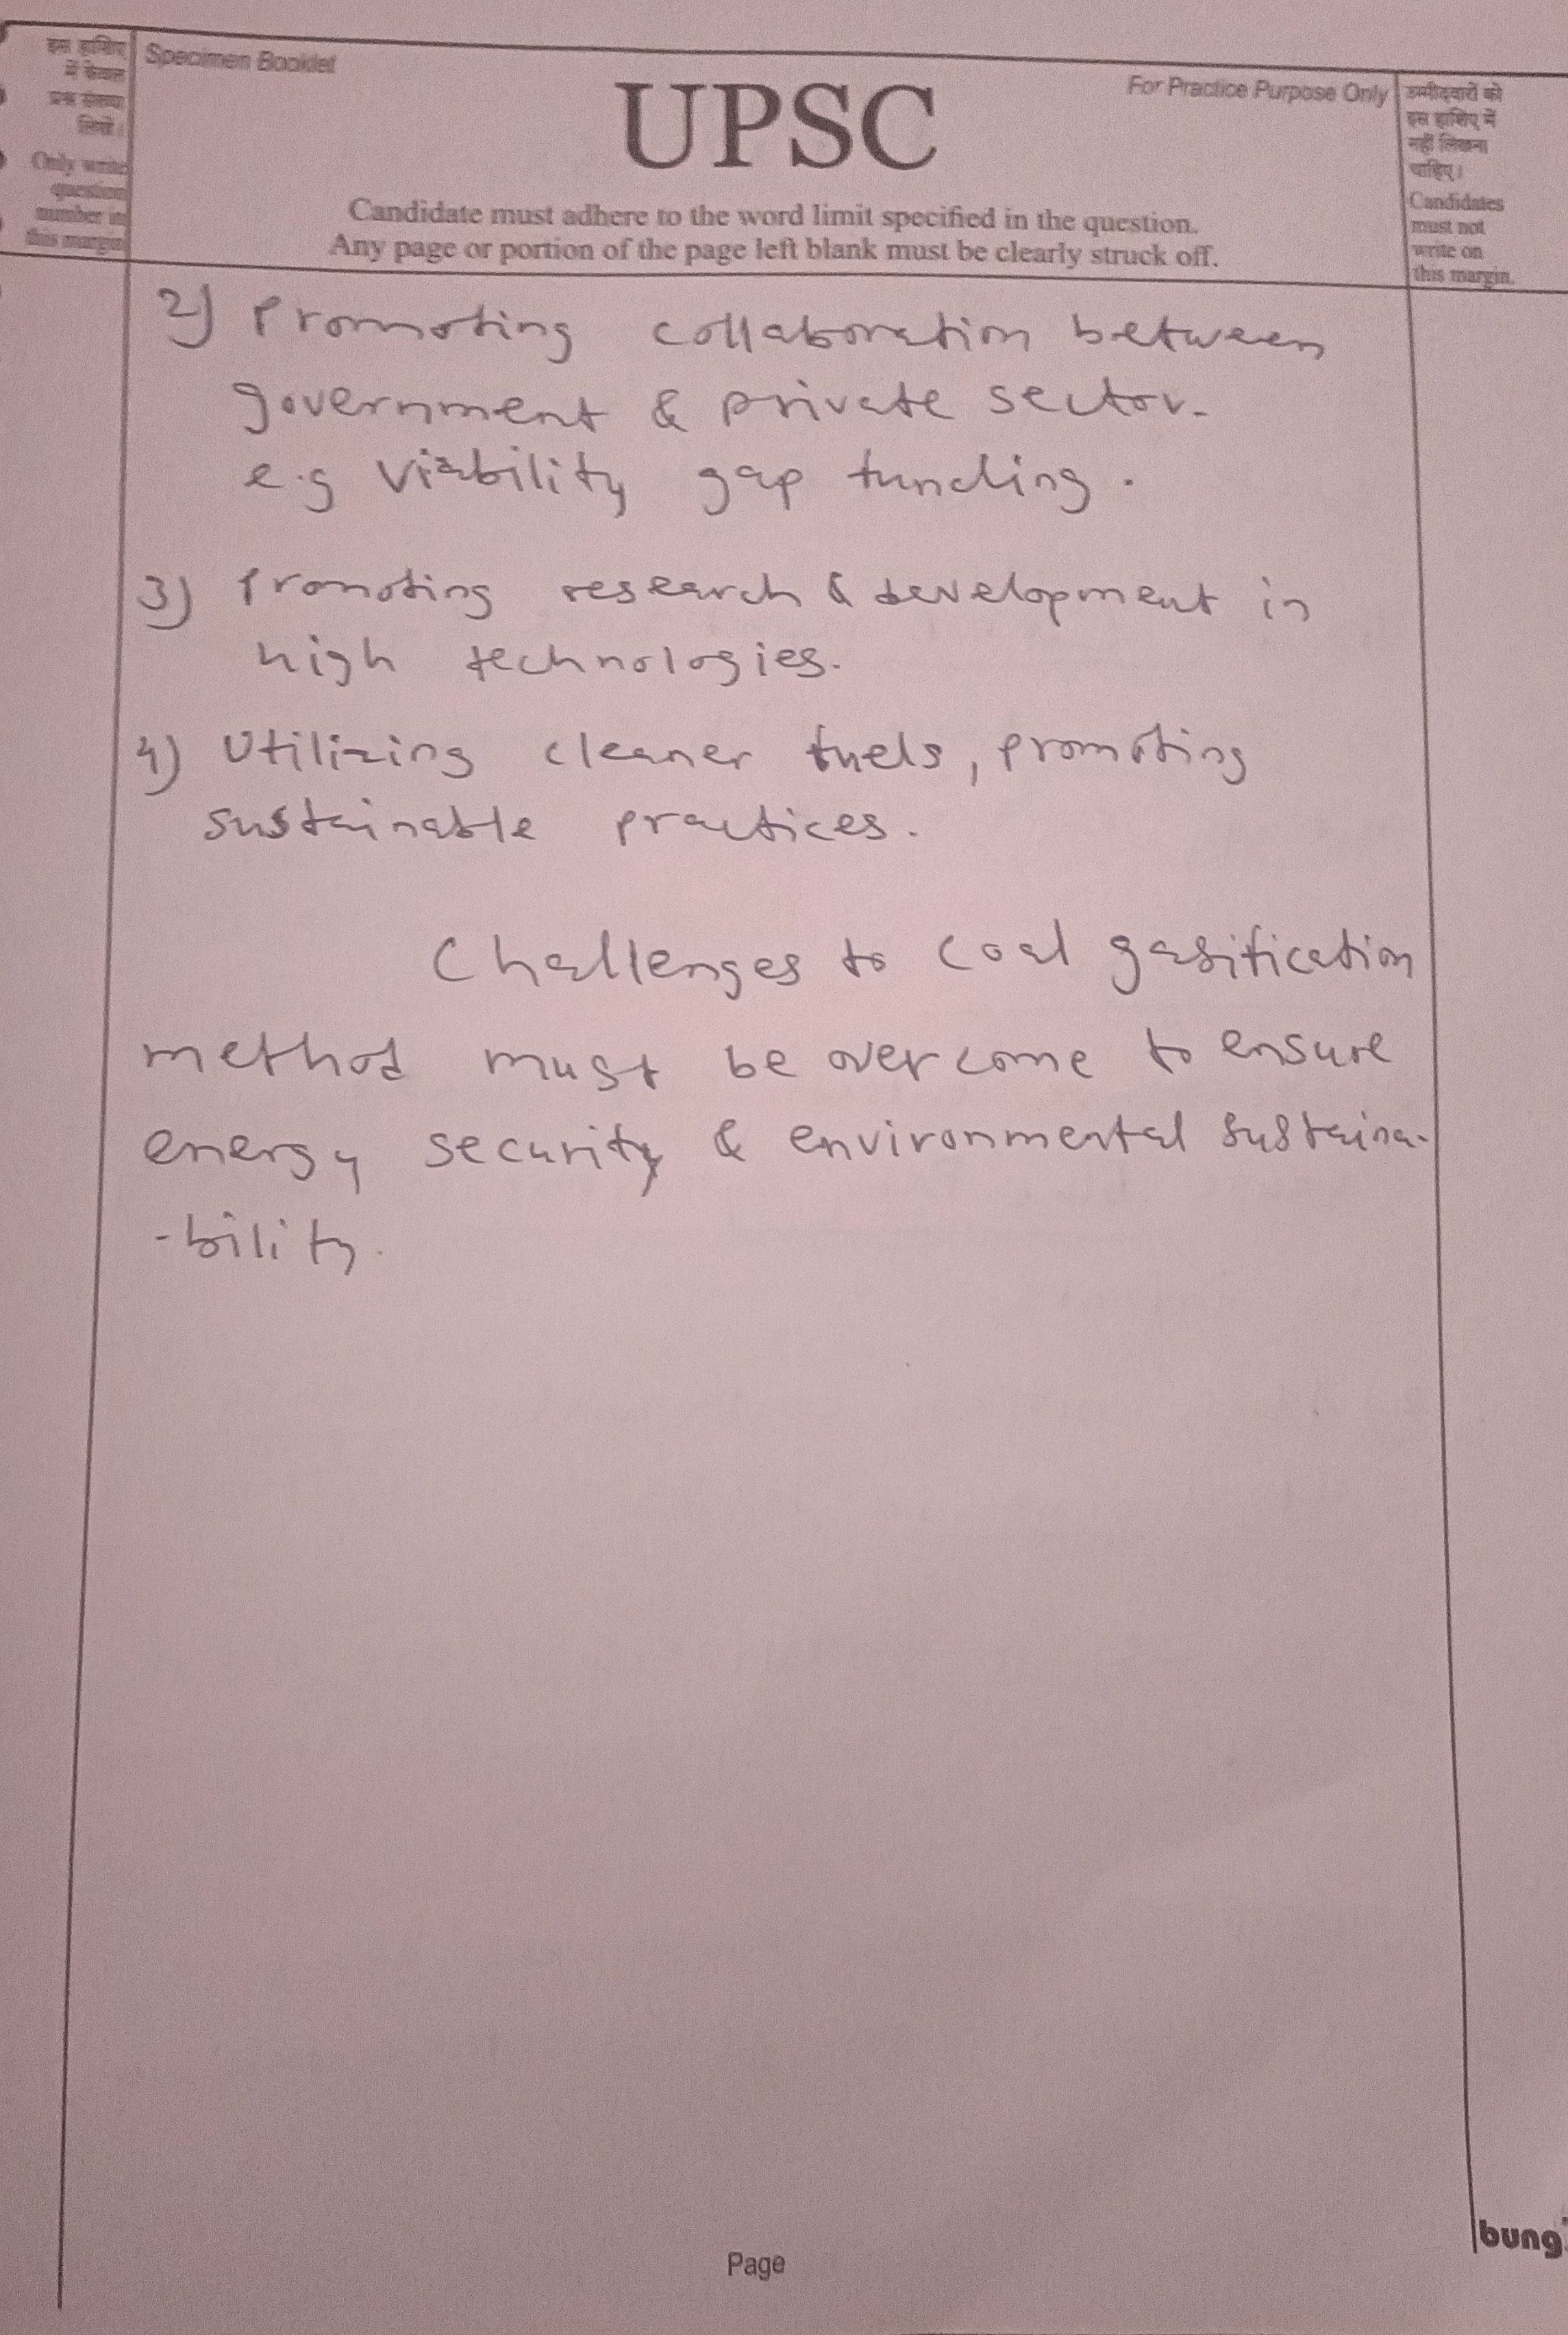 इस हाशिए
में केवल
प्रश्न संख्या
लिखें।
Only write
question
number in
this margin
Specimen Booklet
UPSC
For Practice Purpose Only
Candidate must adhere to the word limit specified in the question.
Any page or portion of the page left blank must be clearly struck off.
उम्मीदवारों को
इस हाशिए में
नहीं लिखना
चाहिए।
Candidates
must not
write on
this margin.
2) Promoting collaboration between
government & private sector.
e.g Viability gap funding.
3) Promoting research & development in
high technologies.
4) Utilizing cleaner fuels, promoting
sustainable practices.
Challenges to coal gasification
method must be overcome to ensure
energy security & environmental sustaina-
-bility.
Page
bung